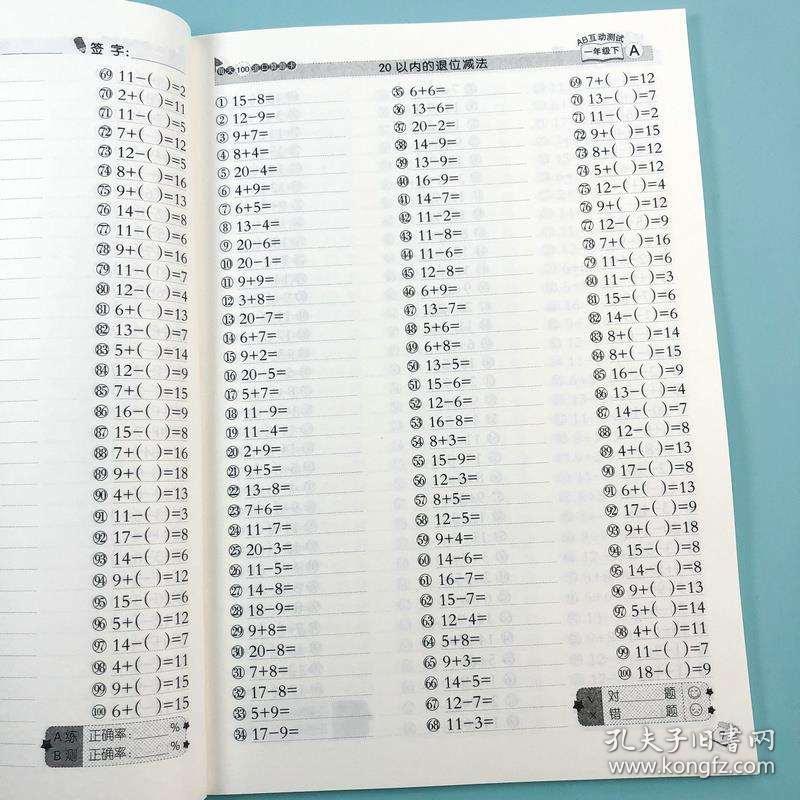 签 字:
69 11-( )=2
70 2+( )=11
71 11-( )=5
72 7+( )=12
73 12-( )=5
74 8+( )=16
75 9+( )=13
76 14-( )=8
77 11-( )=6
78 9+( )=16
79 11-( )=7
80 12-( )=4
81 6+( )=13
82 13-( )=7
83 5+( )=14
84 12-( )=9
85 7+( )=15
86 16-( )=9
87 15-( )=8
88 7+( )=16
89 9+( )=18
90 4+( )=13
91 11-( )=3
92 17-( )=8
93 14-( )=6
94 9+( )=12
95 15-( )=6
96 5+( )=12
97 14-( )=7
98 4+( )=11
99 9+( )=15
100 6+( )=15
A 练 正确率: %
B 测 正确率: %
每天100道口算题卡
20 以内的退位减法
AB互动测试
一年级下 A
① 15-8=
② 12-9=
③ 9+7=
④ 8+4=
⑤ 20-4=
⑥ 4+9=
⑦ 6+5=
⑧ 13-4=
⑨ 20-6=
⑩ 20-1=
⑪ 9+9=
⑫ 3+8=
⑬ 20-7=
⑭ 6+7=
⑮ 9+2=
⑯ 20-5=
⑰ 5+7=
⑱ 11-9=
⑲ 11-4=
⑳ 2+9=
㉑ 9+5=
㉒ 13-8=
㉓ 7+6=
㉔ 11-7=
㉕ 20-3=
㉖ 11-5=
㉗ 14-8=
㉘ 18-9=
㉙ 9+8=
㉚ 20-8=
㉛ 7+8=
㉜ 17-8=
㉝ 5+9=
㉞ 17-9=
㉟ 6+6=
㊱ 13-6=
㊲ 20-2=
㊳ 14-9=
㊴ 13-9=
㊵ 16-9=
㊶ 14-7=
㊷ 11-2=
㊸ 11-8=
㊹ 11-6=
㊺ 12-8=
㊻ 6+9=
㊼ 13-7=
㊽ 5+6=
㊾ 6+8=
㊿ 13-5=
51 15-6=
52 12-6=
53 16-8=
54 8+3=
55 15-9=
56 12-3=
57 8+5=
58 12-5=
59 9+4=
60 14-6=
61 16-7=
62 15-7=
63 12-4=
64 5+8=
65 9+3=
66 14-5=
67 12-7=
68 11-3=
69 7+( )=12
70 13-( )=7
71 11-( )=2
72 9+( )=15
73 8+( )=12
74 5+( )=12
75 12-( )=4
76 9+( )=12
77 12-( )=9
78 7+( )=16
79 11-( )=6
80 11-( )=3
81 15-( )=6
82 14-( )=6
83 8+( )=14
84 8+( )=15
85 16-( )=9
86 13-( )=4
87 14-( )=7
88 12-( )=8
89 4+( )=13
90 17-( )=8
91 6+( )=13
92 17-( )=9
93 9+( )=18
94 15-( )=8
95 14-( )=8
96 9+( )=13
97 5+( )=14
98 4+( )=11
99 11-( )=7
100 18-( )=9
√ 对 题
× 错 题
孔夫子旧书网
www.kongfz.com